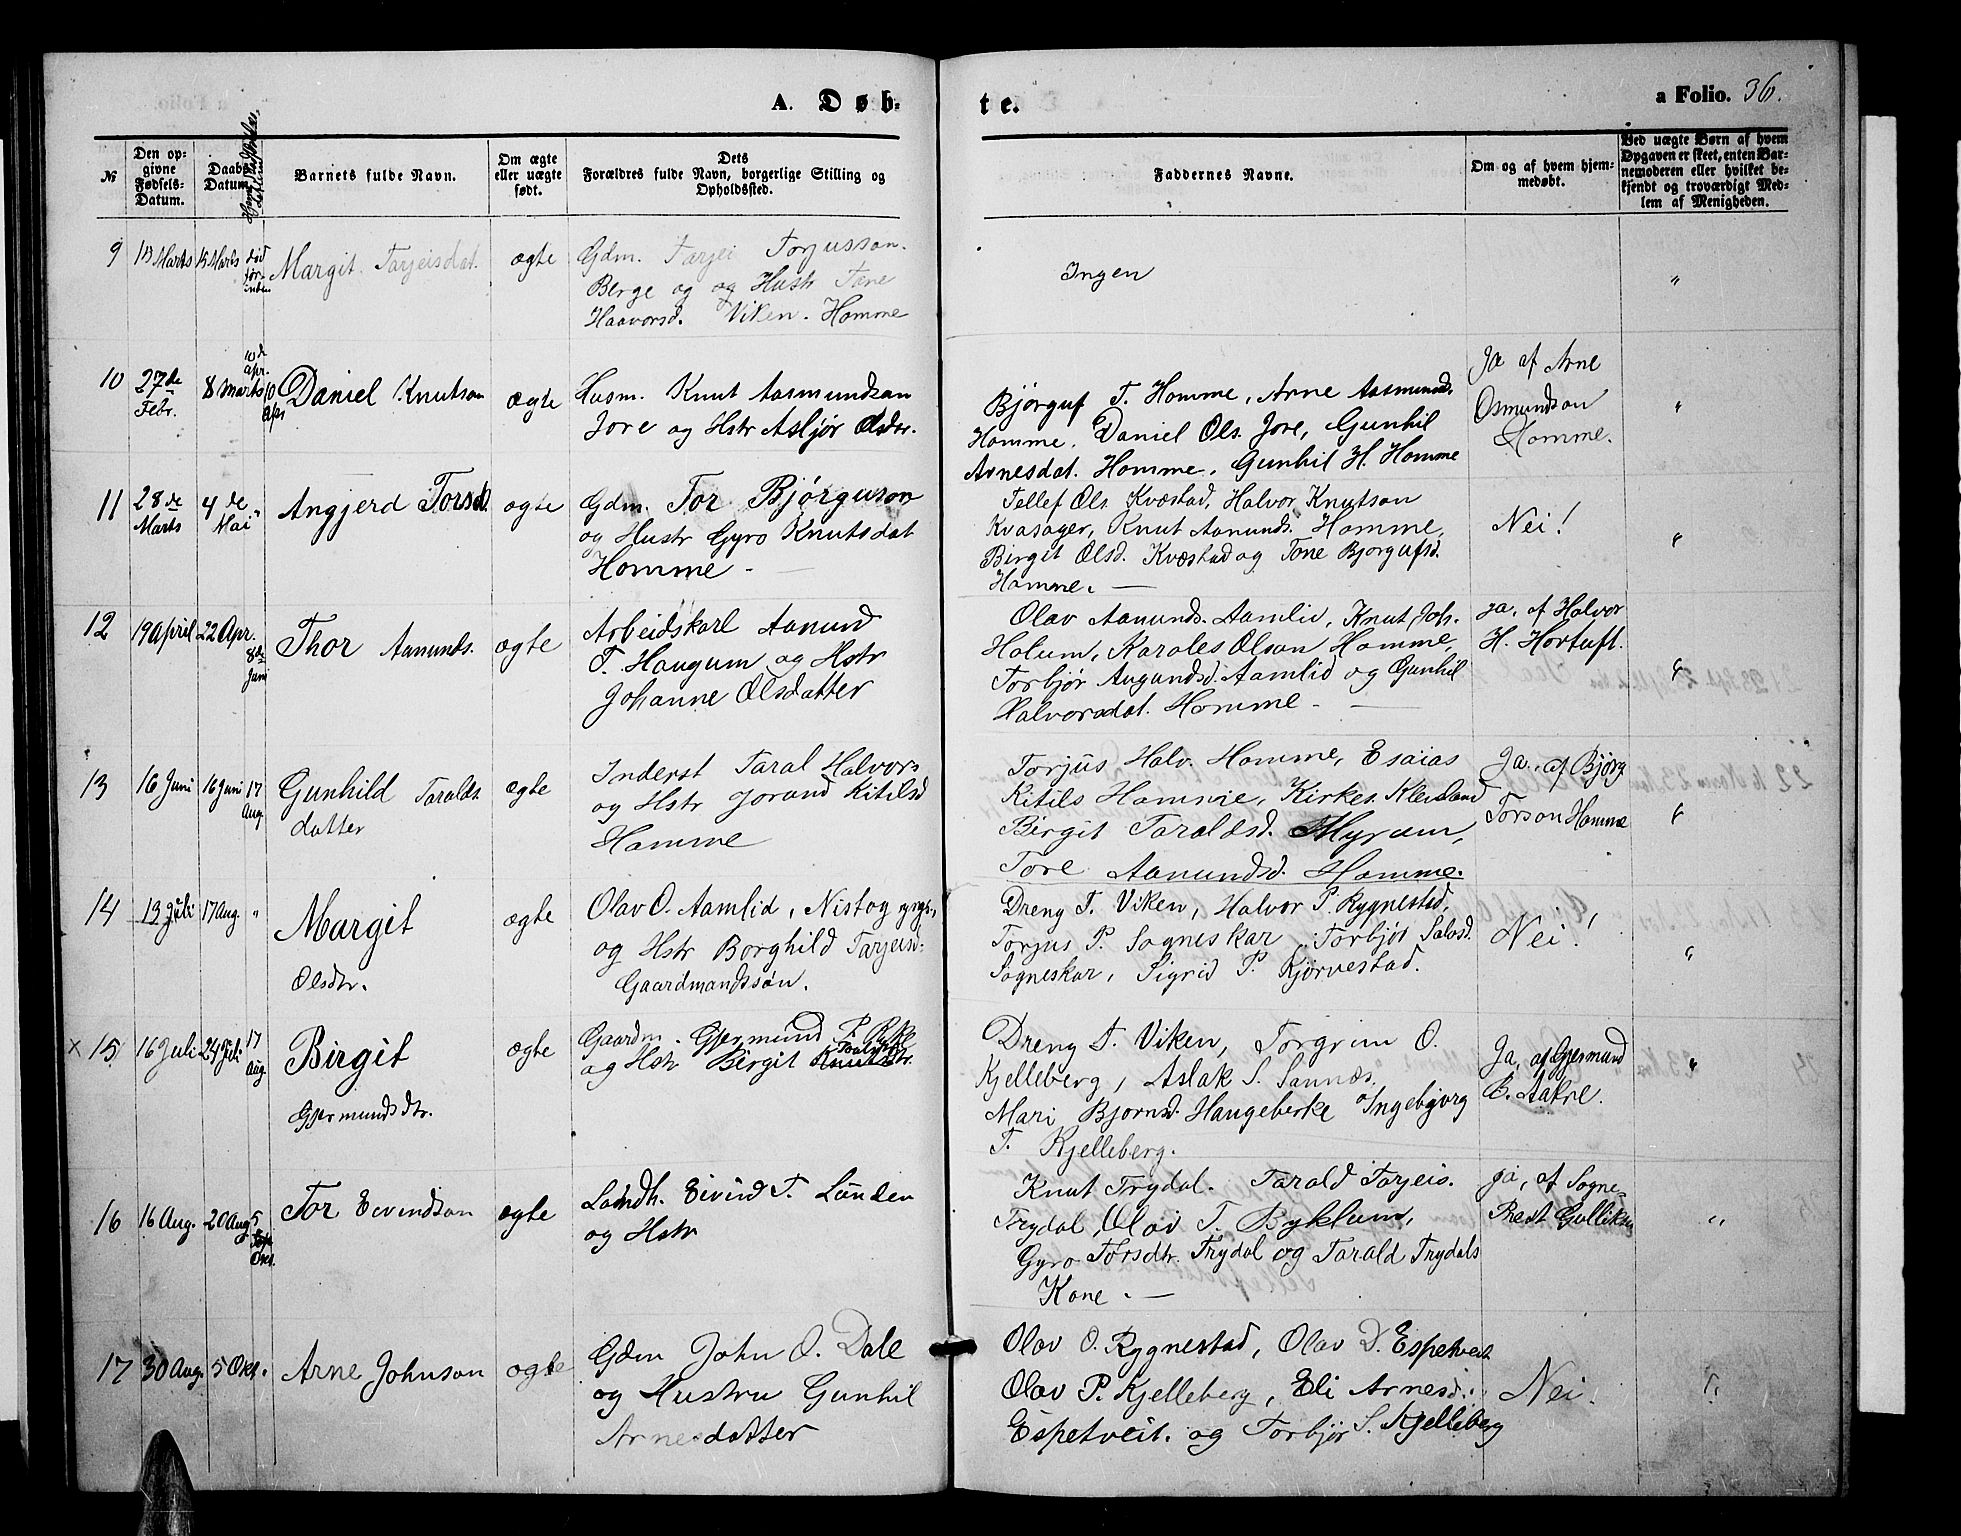 A. Døb=
te.
a Folio. 36.
№
Den op-
givne
Fødsels-
Datum.
Daabs
Datum.
Barnets fulde Navn.
Om ægte
eller uægte
født.
Dets
Forældres fulde Navn, borgerlige Stilling og
Opholdssted.
Faddernes Navne.
Om og af hvem hjem-
medøbt.
Ved uægte Børn af hvem
Opgaven er skeet, enten Bar-
nemoderen eller hvilket be-
kjendt og troværdigt Med-
lem af Menigheden.
9 13 Marts 15 Marts død
før-
inden
Margit Tarjeisdat.
ægte
Gdm. Tarjei Torjusson
Berge og og Hustr Tone
Haavorsd. Viken. Homme
Ingen
"
10 27de
Febr. 8 Marts 10de
Apr. 10
Apr
Daniel Knutson
ægte
Husm. Knut Aasmundsan
Jore og Hstr Asljør Olsdtr.
Bjørguf T. Homme, Arne Aasmunds.
Homme. Daniel Ols. Jore, Gunhil
Arnesdat. Homme. Gunhil H. Homme
Ja af Arne
Osmundson
Homme.
"
11 28de
Marts 4de
Mai "
Angjerd Torsd.
ægte
Gdm. Tor Bjørguson
og Hustr Gyro Knutsdat
Homme -
Tellef Ols. Kvæstad, Halvor Knutson
Kvasager, Knut Aanunds. Homme,
Birgit Olsd. Kvæstad og Tone Bjorgufsd.
Homme. —
Nei!
"
12 19 April 22 Apr. 8de
Juni
Thor Aanunds.
ægte
Arbeidskarl Aanund
T. Haugum og Hstr
Johanne Olsdatter
Olav Aanunds. Aamlid, Knut Joh.
Holum, Karoles Olson Homme,
Torbjør Augundsd. Aamlid og Gunhil
Halvorsdat. Homme -
ja, af Halvor
H. Hortuft.
"
13 16 Juni 16 Juni 17
Aug.
Gunhild Taralds
datter
ægte
Inderst Taral Halvors
og Hstr Jorand Kitilsd
Homme
Torjus Halv. Homme, Esaias
Kitils Homme, Kirkes. Kleveland
Birgit Taraldsd. Myrum,
Tore Aanundsd. Homme.
Ja, af Bjørg
Torson Homme
"
14 13 Juli 17 Aug. "
Margit
Olsdtr.
ægte
Olav O. Aamlid, Nistog
og Hstr Borghild Tarjeisd.
Gaardmandssøn.
Dreng T. Viken, Halvor P. Rygnestad,
Torjus P. Sogneskar, Torbjør Salvsd.
Sogneskar, Sigrid P. Kjørvestad.
Nei!
"
x 15 16 Juli 24 Juli 17
Aug.
Birgit
Gjermundsdtr.
ægte
Gaardm. Gjermund P. Rike
og Hstr Birgit Knutsdtr.
Dreng T. Viken, Torgrim O.
Kjelleberg, Aslak S. Sannæs.
Mari Bjornsd. Haugeberke Ingebjorg
T. Kjelleberg.
Ja, af Gjermund
B. Aakre.
"
16 16 Aug. 20 Aug 5
Okt.
Tor Eivindson
ægte
Landh. Eivind T. Lunden
og Hstr
Knut Trydal. Tarald Tarjeis.
Trydal, Olav T. Byklum,
Gyro Torsdtr. Trydal og Tarald Trydals
Kone. —
ja, af Sogne-
Prest Gulliksen
"
17 30 Aug. 5 Okt.
Arne Johnson
ægte
Gdm John O. Dale
og Hustru Gunhil
Arnesdatter
Olav O. Rygnestad, Olav D. Espetveit
Olav P. Kjelleberg, Eli Arnesd.
Espetveit. og Torbjør S. Kjelleberg
Nei.